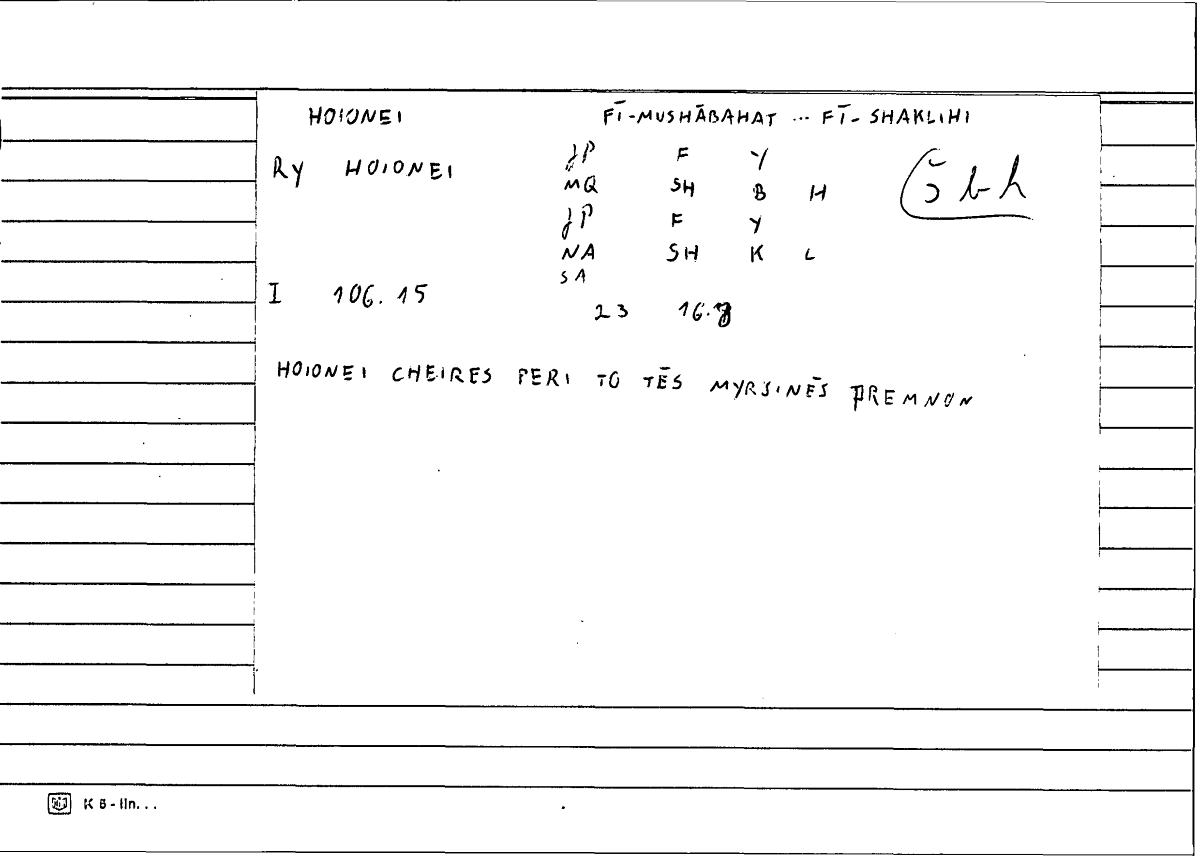 HOIONEI FĪ-MUSHĀBAHAT ... FĪ-SHAKLIHI
Ry HOIONEI JP F Y
MQ SH B H šbh
JP F Y
NA SH K L
SA
I 106.15
23 16.
HOIONEI CHEIRES PERI TO TĒS MYRSINĒS PREMNON
K B-lin...